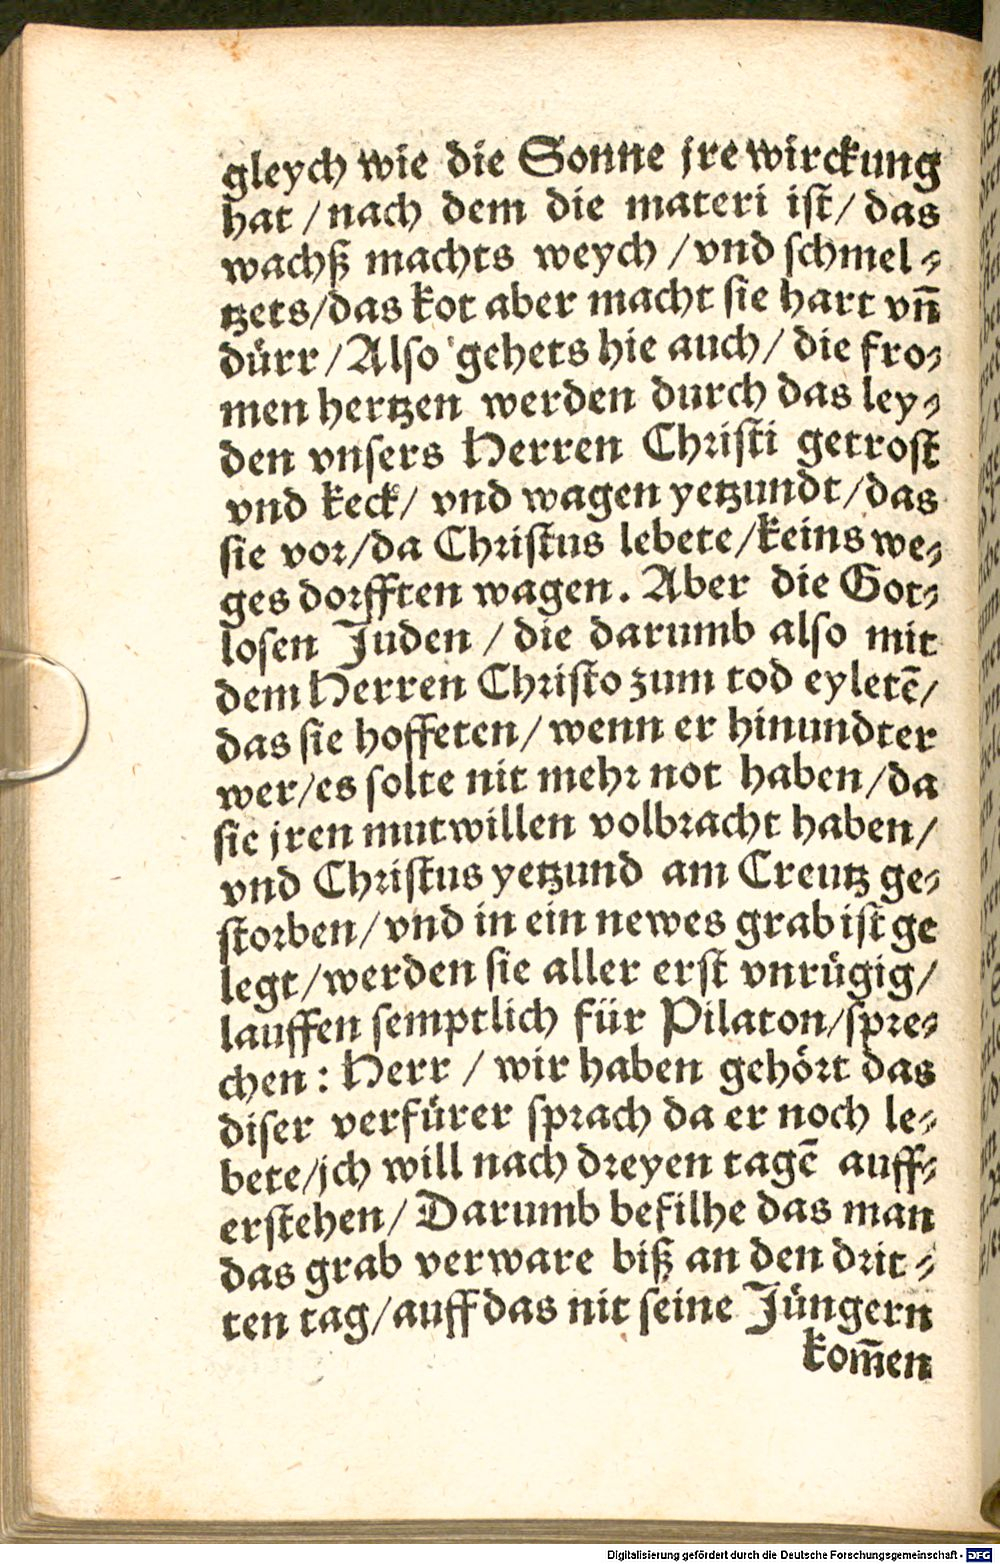 gleych wie die Sonne jre wirckung
hat / nach dem die materi ist / das
wachß machts weych / vnd schmel⸗
tzets / das kot aber macht sie hart vn̄
dürr / Also gehets hie auch / die fro⸗
men hertzen werden durch das ley⸗
den vnsers Herren Christi getrost
vnd keck / vnd wagen yetzundt / das
sie vor / da Christus lebete / keins we⸗
ges dorfften wagen. Aber die Got⸗
losen Juden / die darumb also mit
dem Herren Christo zum tod eyletē /
das sie hoffeten / wenn er hinundter
wer / es solte nit mehr not haben / da
sie jren mutwillen volbracht haben /
vnd Christus yetzund am Creutz ge⸗
storben / vnd in ein newes grab ist ge
legt / werden sie aller erst vnrügig /
lauffen semptlich für Pilaton / spre⸗
chen : Herr / wir haben gehört das
diser verfürer sprach da er noch le⸗
bete / jch will nach dreyen tagē auff⸗
erstehen / Darumb befilhe das man
das grab verware biß an den drit⸗
ten tag / auff das nit seine Jüngern
kom̄en
Digitalisierung gefördert durch die Deutsche Forschungsgemeinschaft - DFG